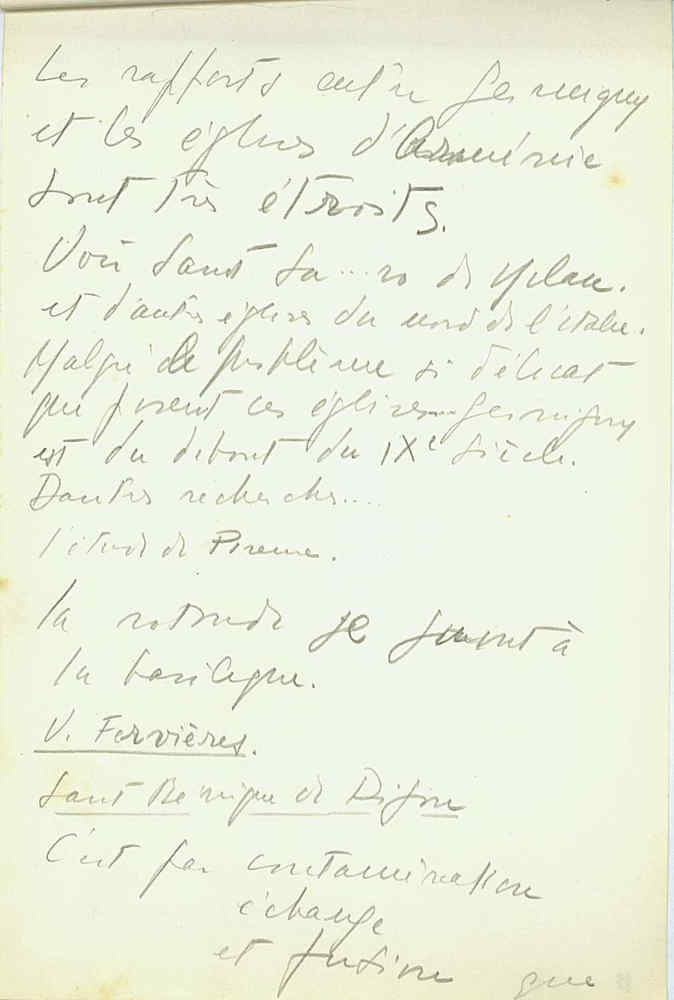 Les rapports entre Germigny
et les églises d'Arménie
sont très étroits.
Voir Sant Sa...ro de Milan.
et d'autres églises du nord de l'Italie.
Malgré le problème si délicat
que posent ces églises... Germigny
est du début du IXe siècle.
D'autres recherches....
l'étude de
la rotonde se joint à
la basilique.
V.
Sant Bénigne de Dijon
C'est par contamination
échange
et fusion que